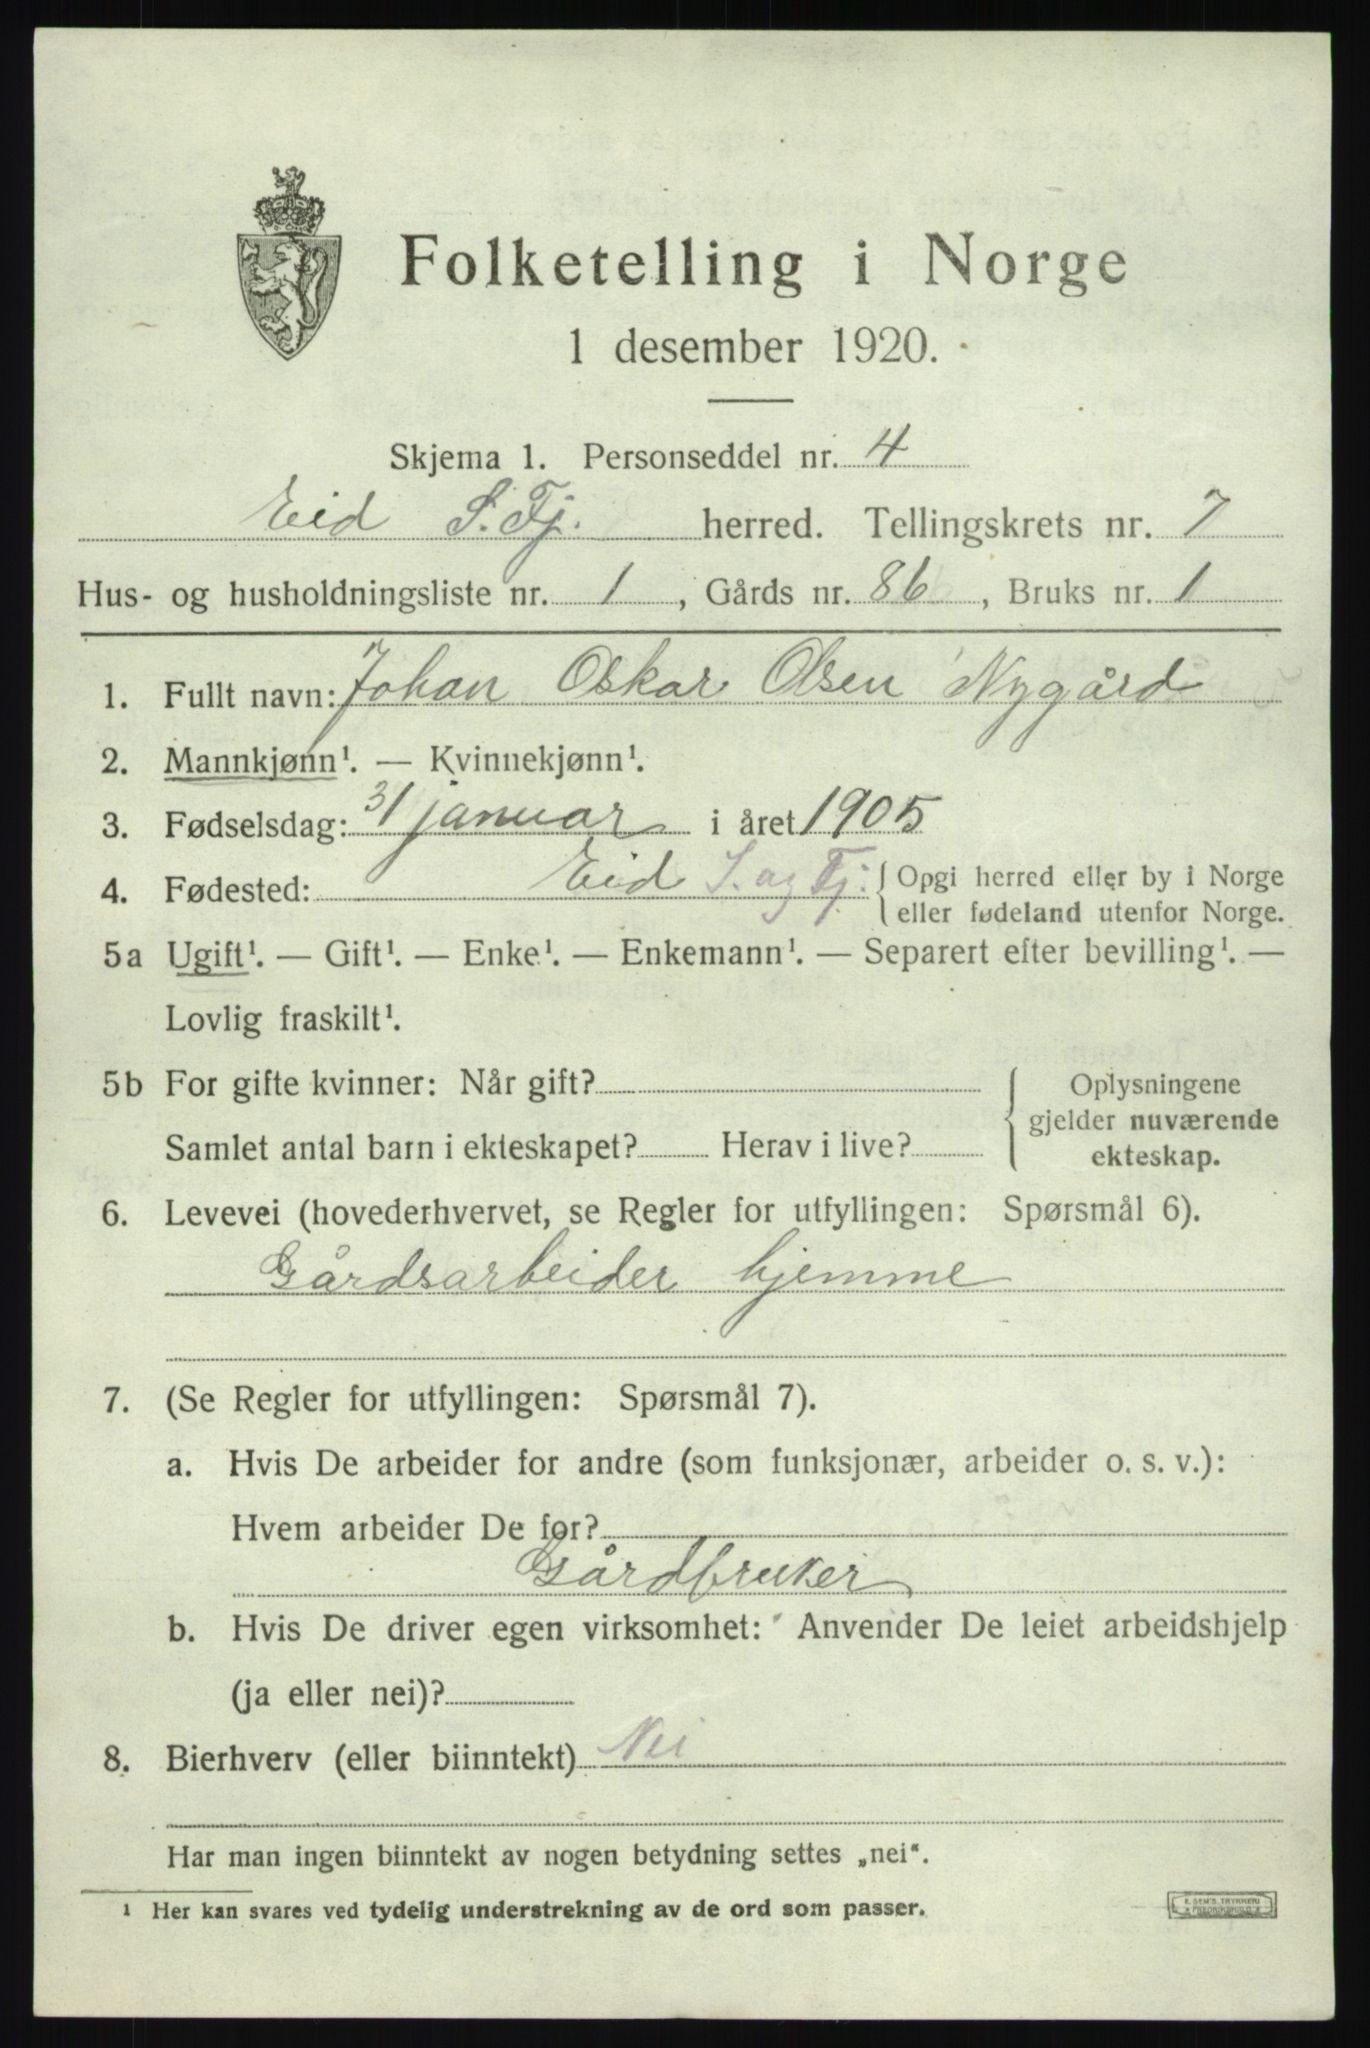 Folketelling i Norge
1 desember 1920.
Skjema 1. Personseddel nr. 4
Eid S. Fj. herred. Tellingskrets nr. 7
Hus- og husholdningsliste nr. 1, Gårds nr. 86, Bruks nr. 1
1. Fullt navn: Johan Oskar Olsen Nygård
2. Mannkjønn¹. — Kvinnekjønn¹.
3. Fødselsdag: 31 januar i året 1905
4. Fødested: Eid S. og Fj. { Opgi herred eller by i Norge
eller fødeland utenfor Norge.
5a Ugift¹. — Gift¹. — Enke¹. — Enkemann¹. — Separert efter bevilling¹. —
Lovlig fraskilt¹.
5b For gifte kvinner: Når gift?
Samlet antal barn i ekteskapet? Herav i live?
{ Oplysningene
gjelder nuværende
ekteskap.
6. Levevei (hovederhvervet, se Regler for utfyllingen: Spørsmål 6).
Gårdsarbeider hjemme
7. (Se Regler for utfyllingen: Spørsmål 7).
a. Hvis De arbeider for andre (som funksjonær, arbeider o. s. v.):
Hvem arbeider De for?
Gårdbruker
b. Hvis De driver egen virksomhet: Anvender De leiet arbeidshjelp
(ja eller nei)?
8. Bierhverv (eller biinntekt) Nei
Har man ingen biinntekt av nogen betydning settes „nei“.
¹ Her kan svares ved tydelig understrekning av de ord som passer.
K. SEM'S TRYKKERI
FREDRIKSHALD